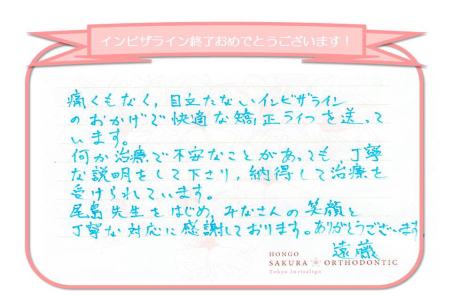 インビザライン終了おめでとうございます！
痛くもなく，目立たないインビザライン
のおかげで快適な矯正ライフを送って
います。
何か治療で不安なことがあっても、丁寧
な説明をして下さり，納得して治療を
受けられています。
尾島先生をはじめ，みなさんの笑顔と
丁寧な対応に感謝しております。ありがとうございます。
遠藤
HONGO
SAKURA ORTHODONTIC
Tokyo Invisalign